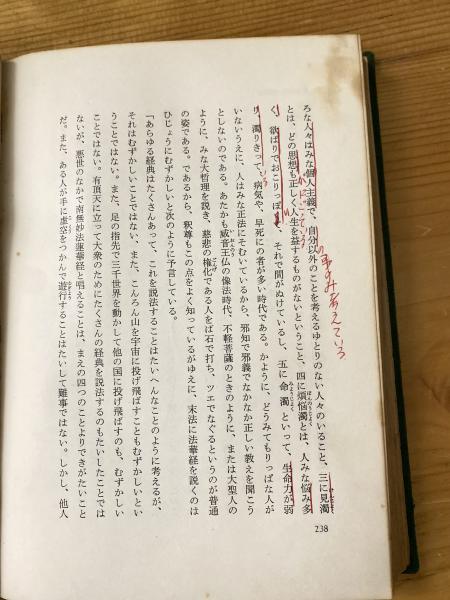 ろな人々はみな個人主義で、自分以外のことを考えるゆとりのない人々のいること、三に見濁
とは、どの思想も正しく人生を益するものがないということ、四に煩悩濁とは、人みな悩み多
く、欲ばりでおこりっぽく、それで間がぬけているし、五に命濁といって、生命力が弱
り、濁りきって、病気や、早死にの者が多い時代である。かように、どうみてもりっぱな人が
いないうえに、人はみな正法にそむいているから、邪知で邪義でなかなか正しい教えを聞こう
としないのである。あたかも威音王仏の像法時代、不軽菩薩のときのように、または大聖人の
ように、みな大哲理を説き、慈悲の権化である人をば石で打ち、ツエでなぐるというのが普通
の姿である。であるから、釈尊もこの点をよく知っているがゆえに、末法に法華経を説くのは
ひじょうにむずかしいと次のように予言している。
「あらゆる経典はたくさんあって、これを説法することはたいへんなことのように考えるが、
それはむずかしいことではない、また、こんろん山を宇宙に投げ飛ばすこともむずかしいとい
うことではない。また、足の指先で三千世界を動かして他の国に投げ飛ばすのも、むずかしい
ことではない。有頂天に立って大衆のためにたくさんの経典を説法するのもたいしたことでは
ないが、悪世のなかで南無妙法蓮華経と唱えることは、まえの四つのことよりできがたいこと
だ。また、ある人が手に虚空をつかんで遊行することはたいして難事ではない。しかし、他人
238